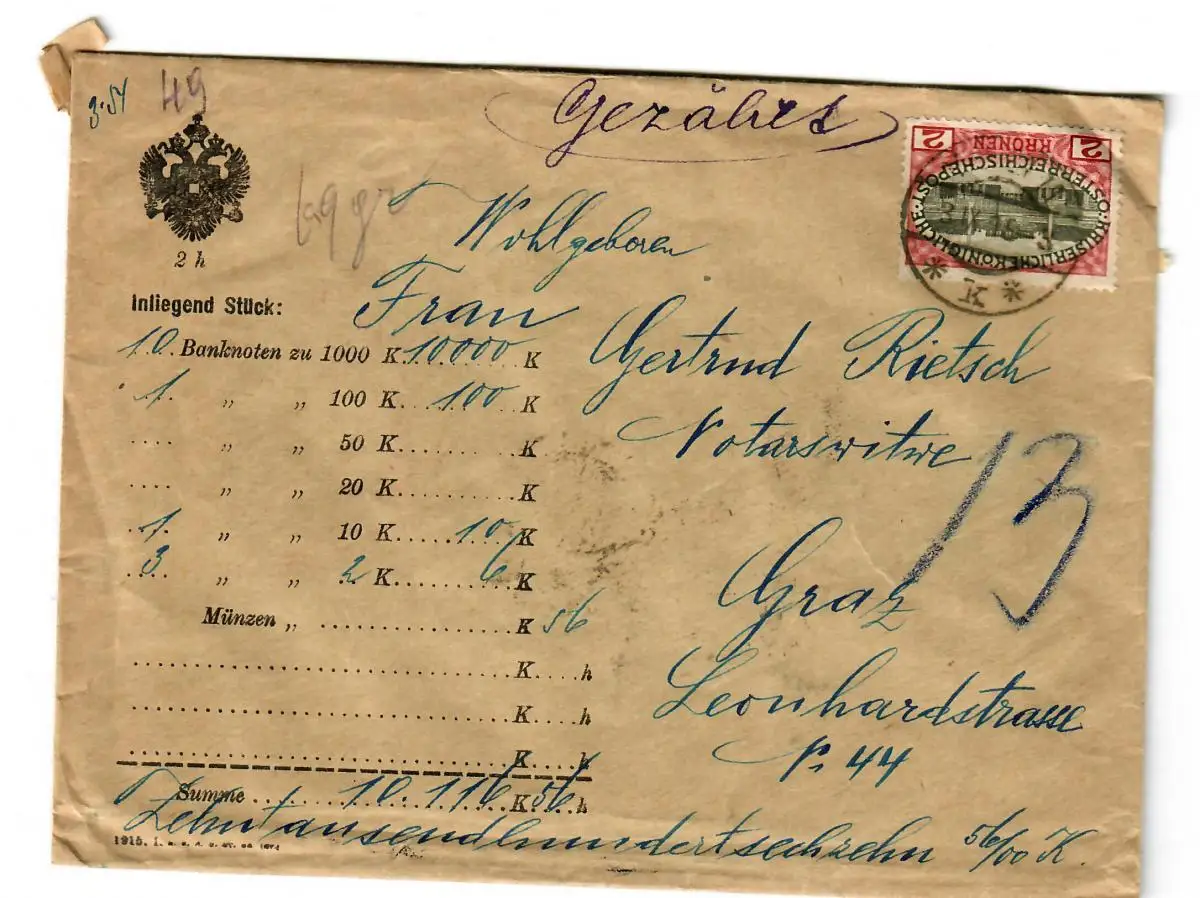 3·54
49
Gezählt
2 KRONEN 2
KAISERLICHE KÖNIGLICHE ÖSTERREICHISCHE POST
* K *
Wohlgeboren
2 h
Inliegend Stück:
Frau
10 Banknoten zu 1000 K 10000 K
Gertrud Rietsch
1 „ „ 100 K 100 K
Notarswitwe
.... „ „ 50 K ........ K
.... „ „ 20 K ........ K
13
1 „ „ 10 K 10 K
3 „ „ 2 K 6 K
Graz
Münzen „ ........ K 56
........ K .... h
Leonhardstrasse
........ K .... h
........ K .... h
Nr. 44
Summe 10.116 K 56 h
Zehntausendhundertsechzehn 56/00 K.
1915.